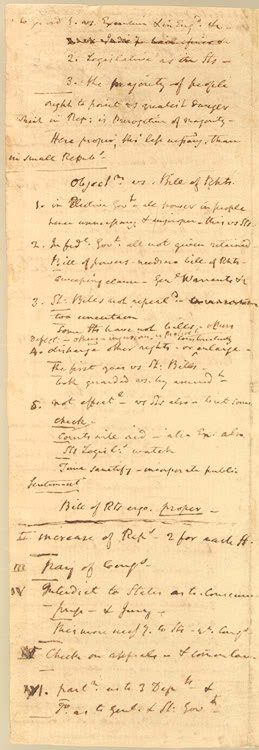 to guard 1. vs. Executive & in Engd. &c
2. Legislature as in Sts—
3. the majority of people
ought to point as greatest danger
which in Rep: is Prerogative of majority—
Here proper, tho' less necessary, than
in small Republs.
Objectns. vs. Bill of Rhts.
1. in Elective Govts. all power in people
hence unnecessary & improper— this vs Sts.
2. In fedl. Govt. all not given retained—
Bill of powers— need no bill of Rhts—
sweeping clause— Genl. Warrants &c
3. St: Bills not repeald.—
too uncertain
Some Sts have not bills— others
defect:— others injurious
4. disparage other rights— or constructively enlarge—
the first goes vs St: Bills—
both guarded vs. by amendts.
5. not effectl.— vs Sts also— but some
check.
Courts will aid— also Ex: also
Sts Legisls: watch
Time sanctify— incorporate public
Sentiment
Bill of Rts ergo. proper—
II increase of Reps.— 2 for each St.
III pay of Congs.
IV Interdict to States as to Conscience—
press— & Jury—
This more necessy. to Sts— yn. Congs.
V Check on appeals— & common law.
VI. partn. as to 3 Depts— &
do. as to Genl & St: Govts.